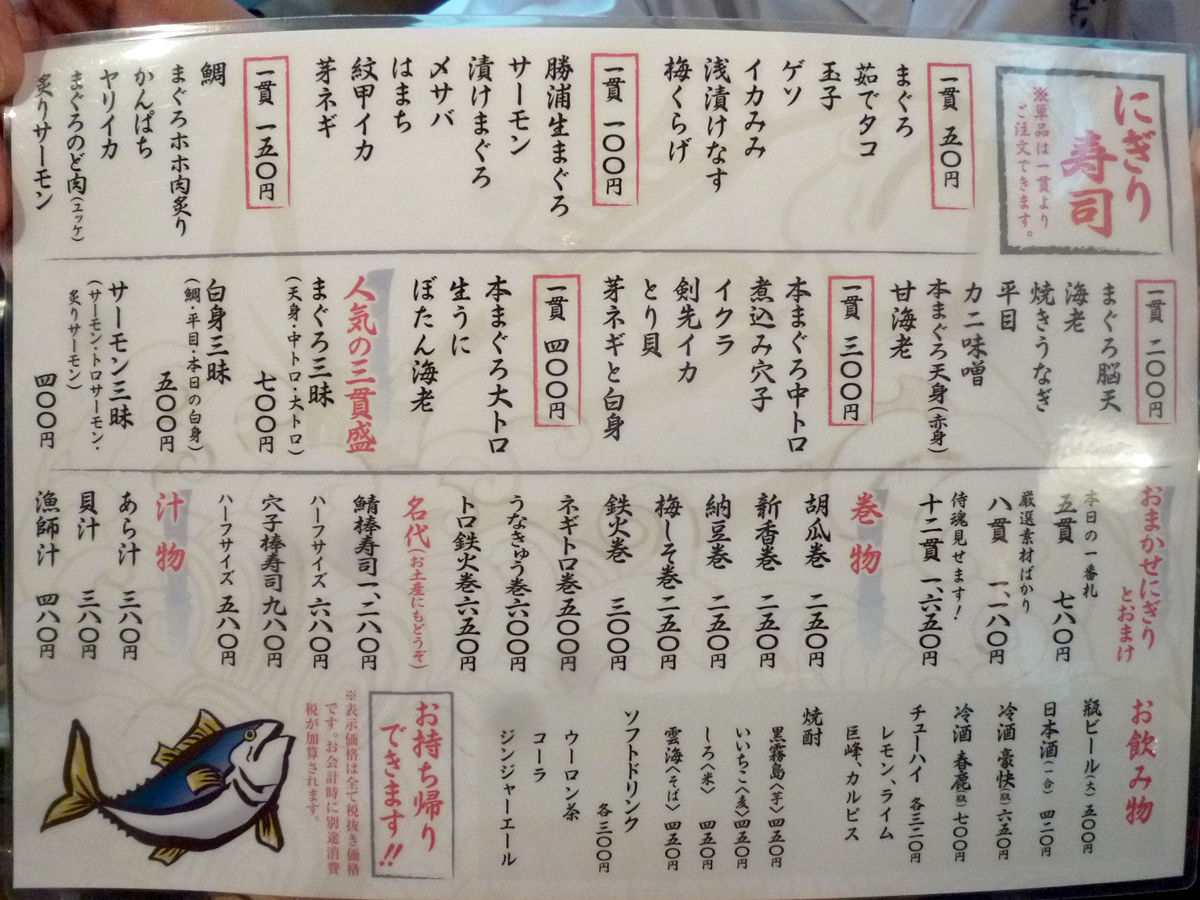 にぎり
寿司
※単品は一貫より
ご注文できます。
一貫 五〇円
まぐろ
茹でタコ
玉子
ゲソ
イカみみ
浅漬けなす
梅くらげ
一貫 一〇〇円
勝浦生まぐろ
サーモン
漬けまぐろ
〆サバ
はまち
紋甲イカ
芽ネギ
一貫 一五〇円
鯛
まぐろホホ肉炙り
かんぱち
ヤリイカ
まぐろのど肉(ユッケ)
炙りサーモン
一貫 二〇〇円
まぐろ脳天
海老
焼きうなぎ
平目
カニ味噌
本まぐろ天身(赤身)
甘海老
一貫 三〇〇円
本まぐろ中トロ
煮込み穴子
イクラ
剣先イカ
とり貝
芽ネギと白身
一貫 四〇〇円
本まぐろ大トロ
生うに
ぼたん海老
人気の三貫盛
まぐろ三昧
(天身・中トロ・大トロ)
七〇〇円
白身三昧
(鯛・平目・本日の白身)
五〇〇円
サーモン三昧
(サーモン・トロサーモン・
炙りサーモン)
四〇〇円
おまかせにぎり
とおまけ
本日の一番札
五貫 七八〇円
厳選素材ばかり
八貫 一、一八〇円
侍魂見せます!
十二貫 一、六五〇円
巻物
胡瓜巻 二五〇円
新香巻 二五〇円
納豆巻 二五〇円
梅しそ巻 二五〇円
鉄火巻 三〇〇円
ネギトロ巻 五〇〇円
うなきゅう巻 六〇〇円
トロ鉄火巻 六五〇円
名代(お土産にもどうぞ)
鯖棒寿司 一、二八〇円
ハーフサイズ 六八〇円
穴子棒寿司 九八〇円
ハーフサイズ 五八〇円
汁物
あら汁 三八〇円
貝汁 三八〇円
漁師汁 四八〇円
お飲み物
瓶ビール(大) 五〇〇円
日本酒(一合) 四二〇円
冷酒 豪快(瓶) 六五〇円
冷酒 春鹿(瓶) 七〇〇円
チューハイ 各三二〇円
レモン、ライム
巨峰、カルピス
焼酎
黒霧島〈芋〉 四五〇円
いいちこ〈麦〉 四五〇円
しろ〈米〉 四五〇円
雲海〈そば〉 四五〇円
ソフトドリンク
各三〇〇円
ウーロン茶
コーラ
ジンジャーエール
お持ち帰り
できます!!
※表示価格は全て税抜き価格
です。お会計時に別途消費
税が加算されます。